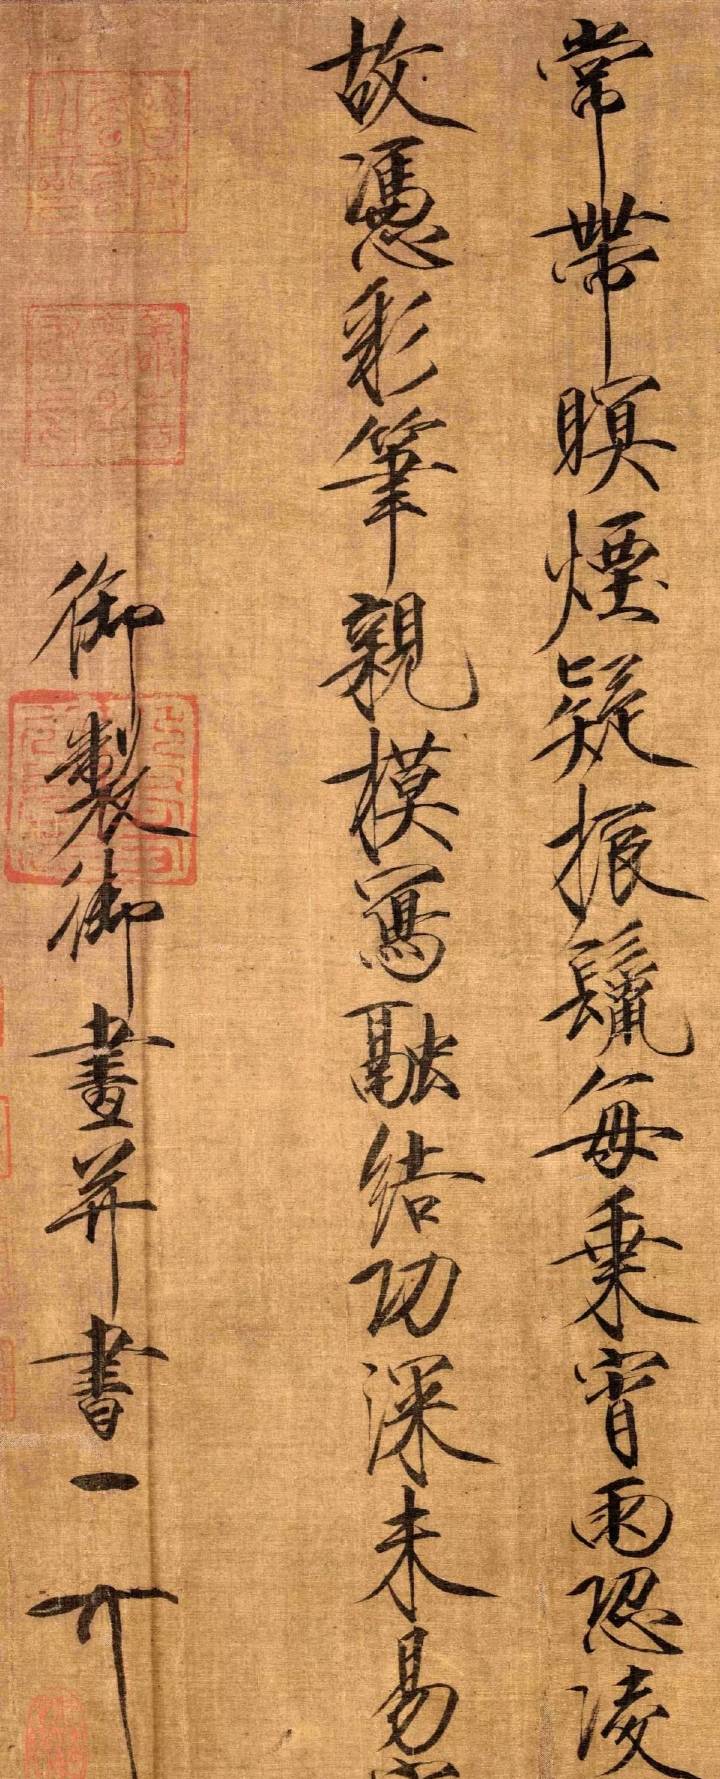 常帶暝煙疑振鬣每乘宵雨恐凌
故憑彩筆親模寫融結功深未易
御製御畫并書